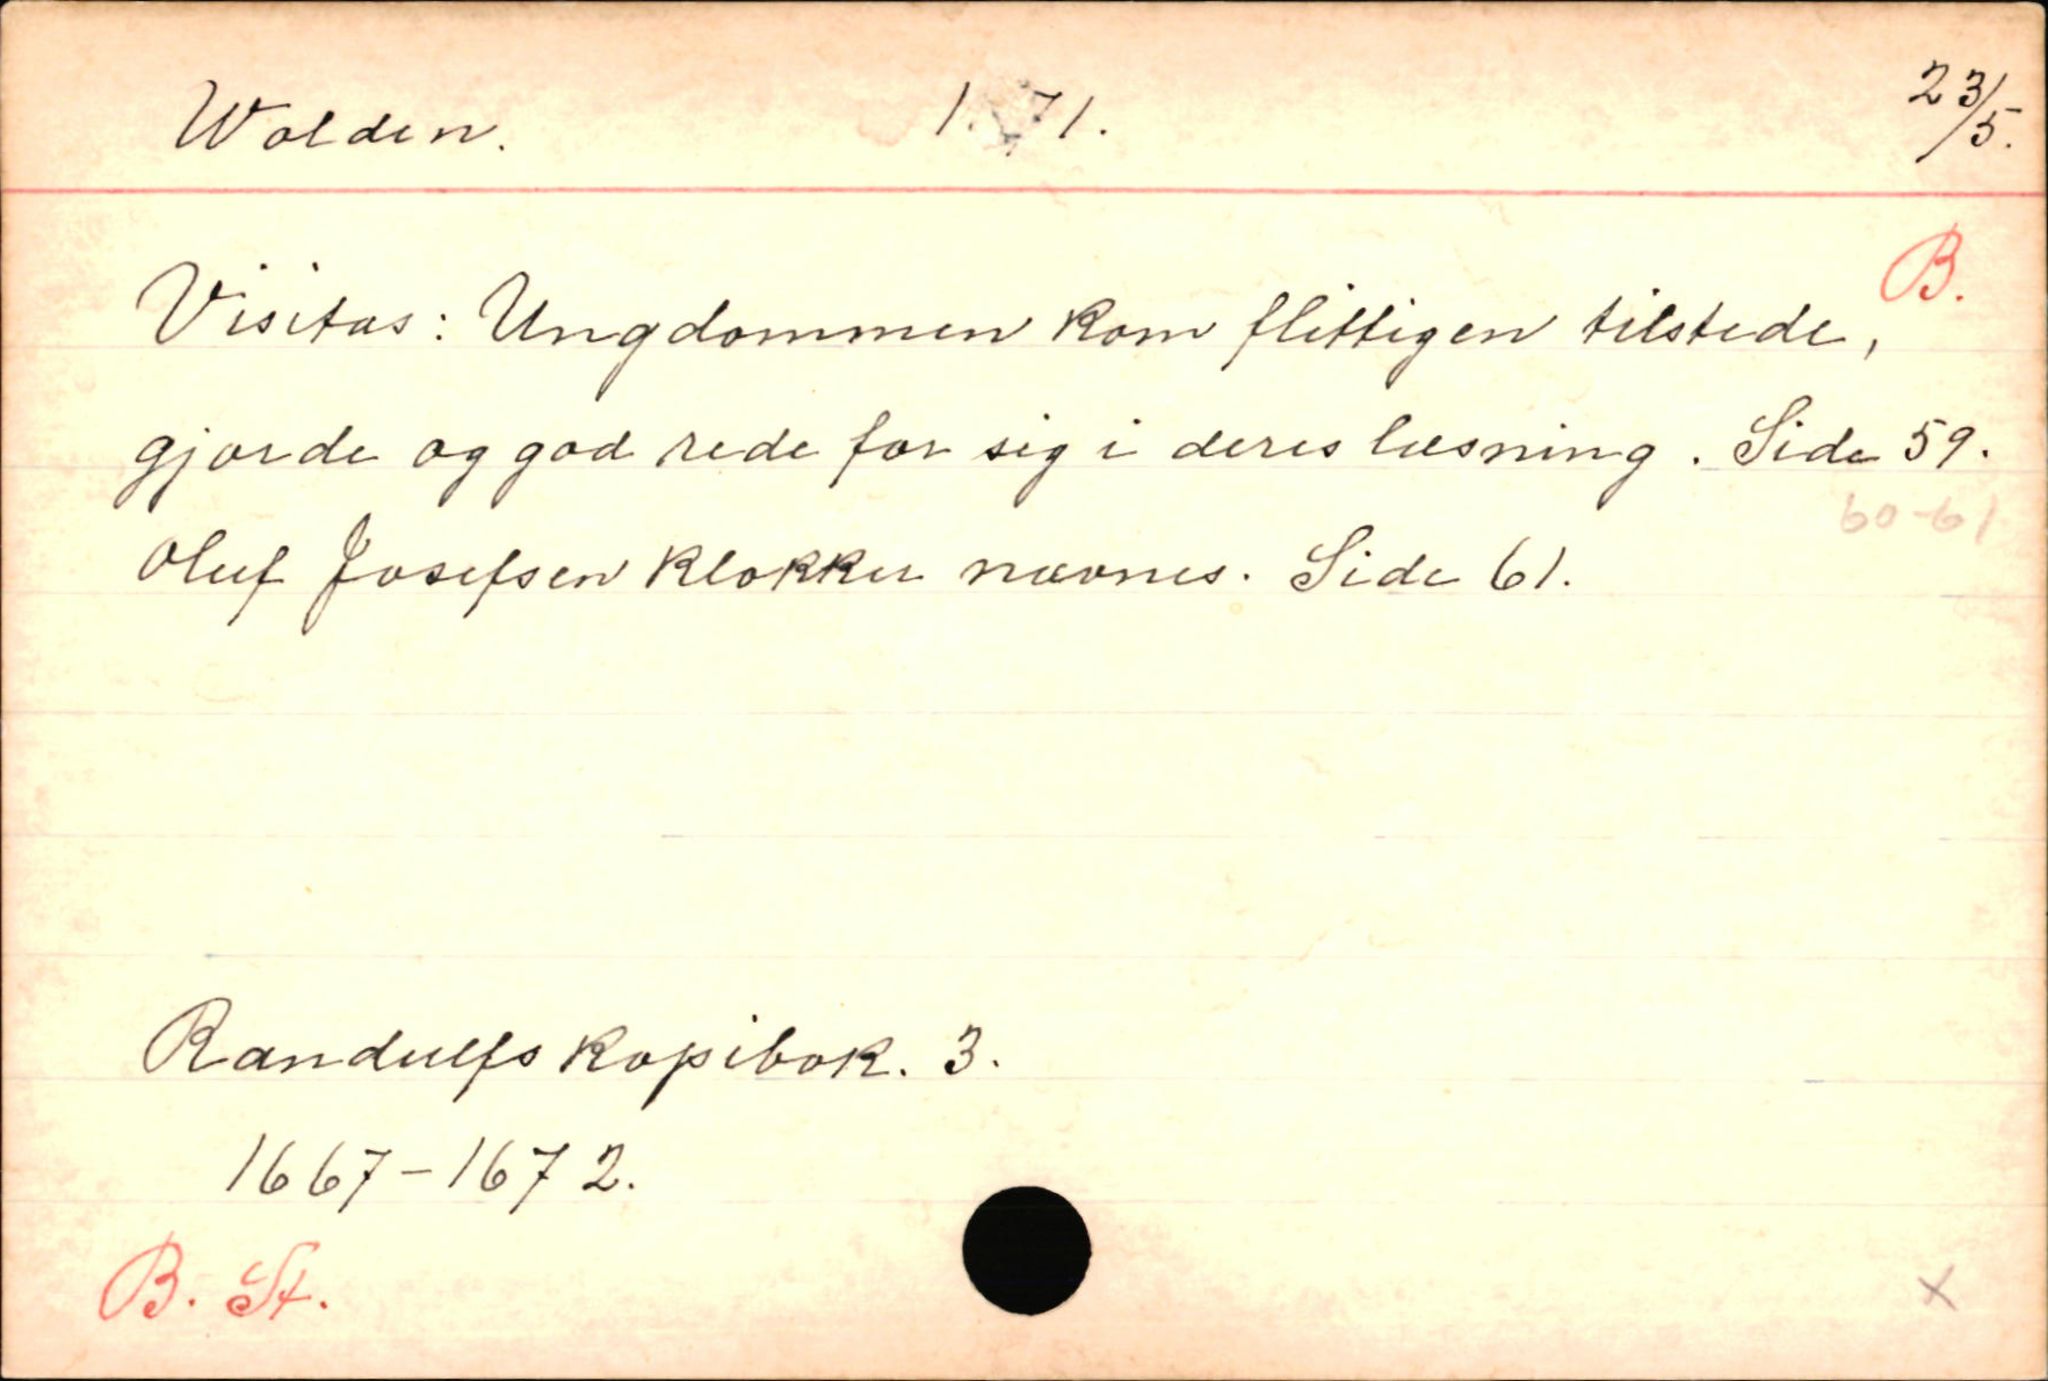 Wolden. 1 71. 23/5.
B.
Visitas: Ungdommen kom flittigen tilstede,
gjorde og god rede for sig i deres læsning. Side 59.
60-61
Oluf Josefsen klokker nævnes. Side 61.
Randulfs kopibok. 3.
1667-1672.
B. St.
x